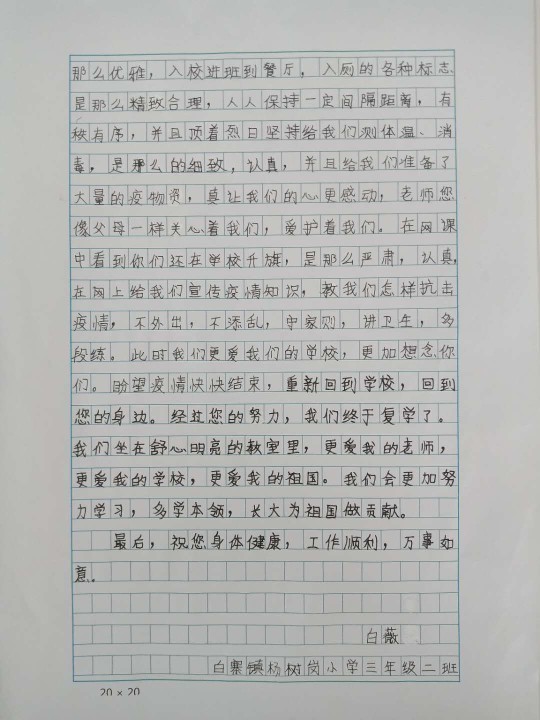 那么优雅，入校进班到餐厅，入厕的各种标志
是那么精致合理，人人保持一定间隔距离，有
秩有序，并且顶着烈日坚持给我们测体温、消
毒，是那么的细致，认真，并且给我们准备了
大量的疫物资，真让我们的心更感动，老师您
像父母一样关心着我们，爱护着我们。在网课
中看到你们还在学校升旗，是那么严肃，认真，
在网上给我们宣传疫情知识，教我们怎样抗击
疫情，不外出，不添乱，守家则，讲卫生，多
段练。此时我们更爱我们的学校，更加想念你
们。盼望疫情快快结束，重新回到学校，回到
您的身边。经过您的努力，我们终于复学了。
我们坐在舒心明亮的教室里，更爱我的老师，
更爱我的学校，更爱我的祖国。我们会更加努
力学习，多学本领，长大为祖国做贡献。
最后，祝您身体健康，工作顺利，万事如
意。
白薇
白寨镇杨树岗小学三年级二班
20×20